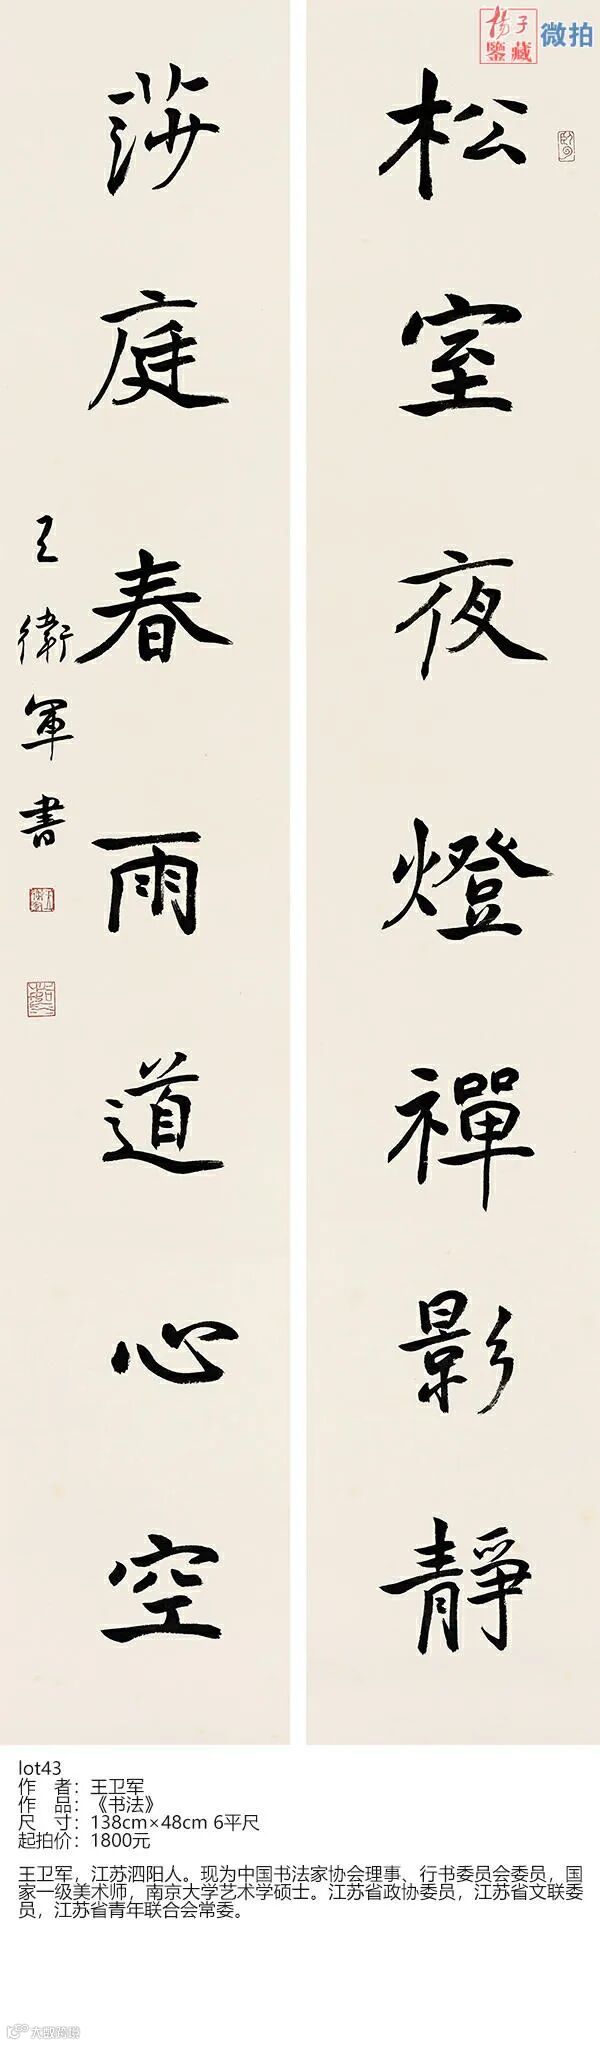 揚子
鑒藏
微拍
松室夜燈禪影靜
莎庭春雨道心空
王衛軍書
lot43
作 者：王卫军
作 品：《书法》
尺 寸：138cm×48cm 6平尺
起拍价：1800元
王卫军，江苏泗阳人。现为中国书法家协会理事、行书委员会委员，国
家一级美术师，南京大学艺术学硕士。江苏省政协委员，江苏省文联委
员，江苏省青年联合会常委。
大数跨境